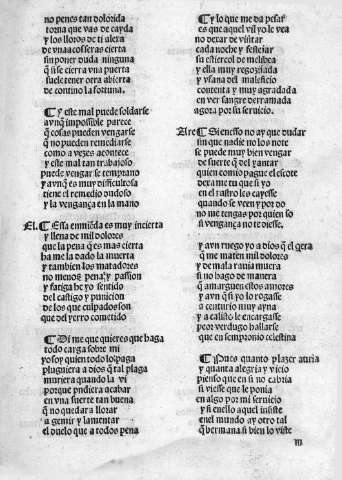 no penes tan dolorida
torna que vas de cayda
y los lloros de ti alexa
de vna a coffer as cierta
sin poner duda ninguna
q̃ si se cierra vna puerta
suele tener otra abierta
de contino la fortuna.
¶ Y este mal puede soldarse
aynq̃ impossible parece
q̃ cosas pueden vengarse
q̃ no pueden remediarse
como a vezes acontece
y este mal tan trabajoso
puede vengar se temprano
y avnq̃ es muy dificultosa
tiene el remedio dudoso
y la vengança en la mano
El. ¶ Essa enmiẽda es muy incierta
y llena de mil dolores
que la pena q̃ es mas cierta
ha me la dado la muerta
y tambien los matadores
no menos pena y passion
y fatiga he yo sentido
del castigo y punicion
de los que culpados son
que del yerro cometido
¶ Di me que quieres que haga
todo carga sobre mi
yo soy quien todo lo paga
pluguiera a dios q̃ tal plaga
muriera quando la vi
porque pudiera acabar
en vna suerte tan buena
q̃ no quedara a llorar
a gemir y lamentar
el duelo que a todos pena
¶ Y lo que me da pesar
es que aquel vil yo le vea
no dexar de visitar
cada noche y festejar
su estiercol de melibea
y ella muy regozijada
y vfana del maleficio
contenta y muy agradada
en ver sangre derramada
agora por su seruicio.
Are ¶ Si en esso no ay que dudar
sin que nadie no los note
se puede muy bien vengar
de suerte q̃ del yantar
quien comio pague el escote
dexa me tu que si yo
en el rastro les cayesse
quando se veen y por do
no me tengas por quien so
si vengança no te diesse.
y avn ruego yo a dios q̃l q̃era
que me maten mil dolores
y de mala rauia muera
si no hago de manera
que amarguen estos amores
y avn q̃ si yo lo rogasse
a centurio muy ayna
y a calisto le encargasse
peor verdugo hallarse
que en sempronio celestina
¶ Pues quanto plazer auria
y quanta alegria y vicio
pienso que en si no cabria
si viesse que le ponia
en algo por mi seruicio
y si en ello aquel insiste
en el mundo ay otro tal
q̃ hermana si bien lo viste
m